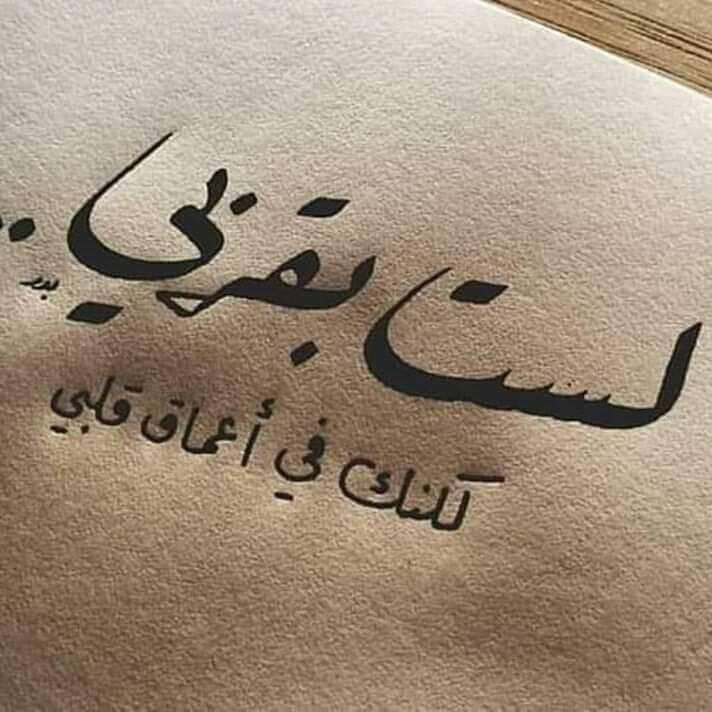 لست بقربي..
لكنك في أعماق قلبي
بدر